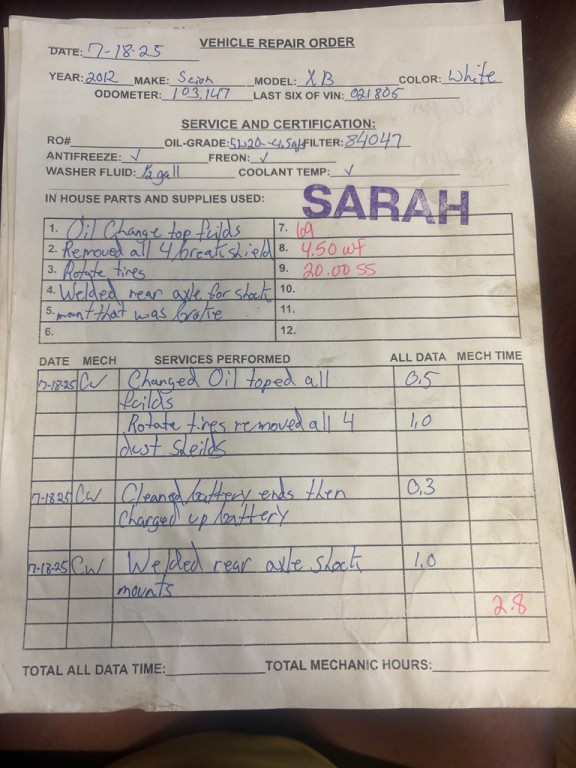 VEHICLE REPAIR ORDER
DATE: 7-18-25
YEAR: 2012 MAKE: Scion MODEL: XB COLOR: White
ODOMETER: 103,147 LAST SIX OF VIN: 021805
SERVICE AND CERTIFICATION:
RO# OIL-GRADE: 5W20-4.5qt FILTER: 84047
ANTIFREEZE: ✓ FREON: ✓
WASHER FLUID: 1/2 gall COOLANT TEMP: ✓
IN HOUSE PARTS AND SUPPLIES USED: SARAH
1. Oil Change top fuilds 7. 69
2. Removed all 4 break shield 8. 4.50 wf
3. Rotate tires 9. 20.00 SS
4. Welded rear axle for shock 10.
5. mount that was broke 11.
6. 12.
DATE MECH SERVICES PERFORMED ALL DATA MECH TIME
7-18-25 CW Changed Oil toped all 0.5
fuilds
Rotate tires removed all 4 1.0
dust sheilds
7-18-25 CW Cleaned battery ends then 0.3
Charged up battery
7-18-25 CW Welded rear axle shock 1.0
mounts
2.8
TOTAL ALL DATA TIME: TOTAL MECHANIC HOURS: